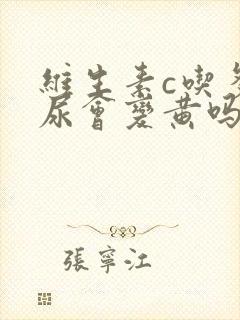 維生素c喫多
尿會變黄吗
張寧江